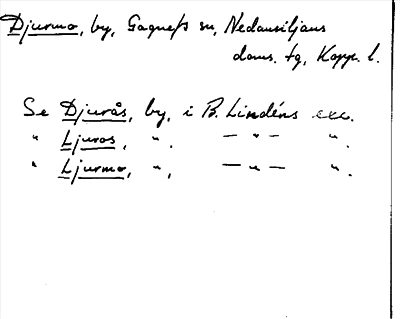 Djurmo, by, Gagnefs sn, Nedansiljans
doms. tg, Kopp. l.
Se Djurås, by, i B. Lindéns exc.
" Ljuros, ", — " — ".
" Ljurmo, ", — " — ".